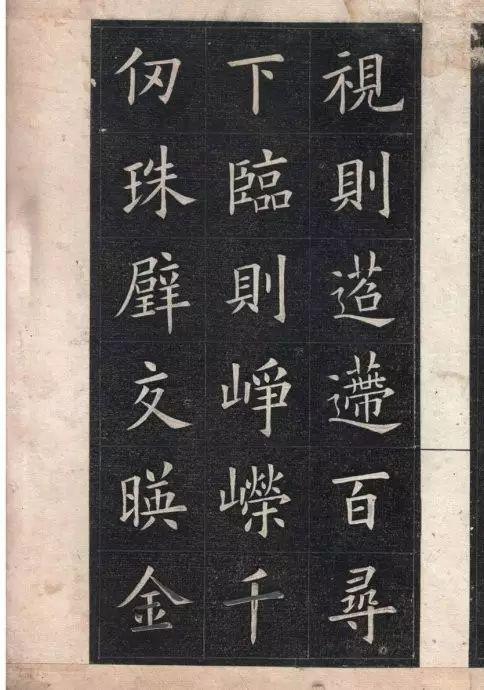 視則迢遰百尋
下臨則崢嶸千
仞珠壁交暎金